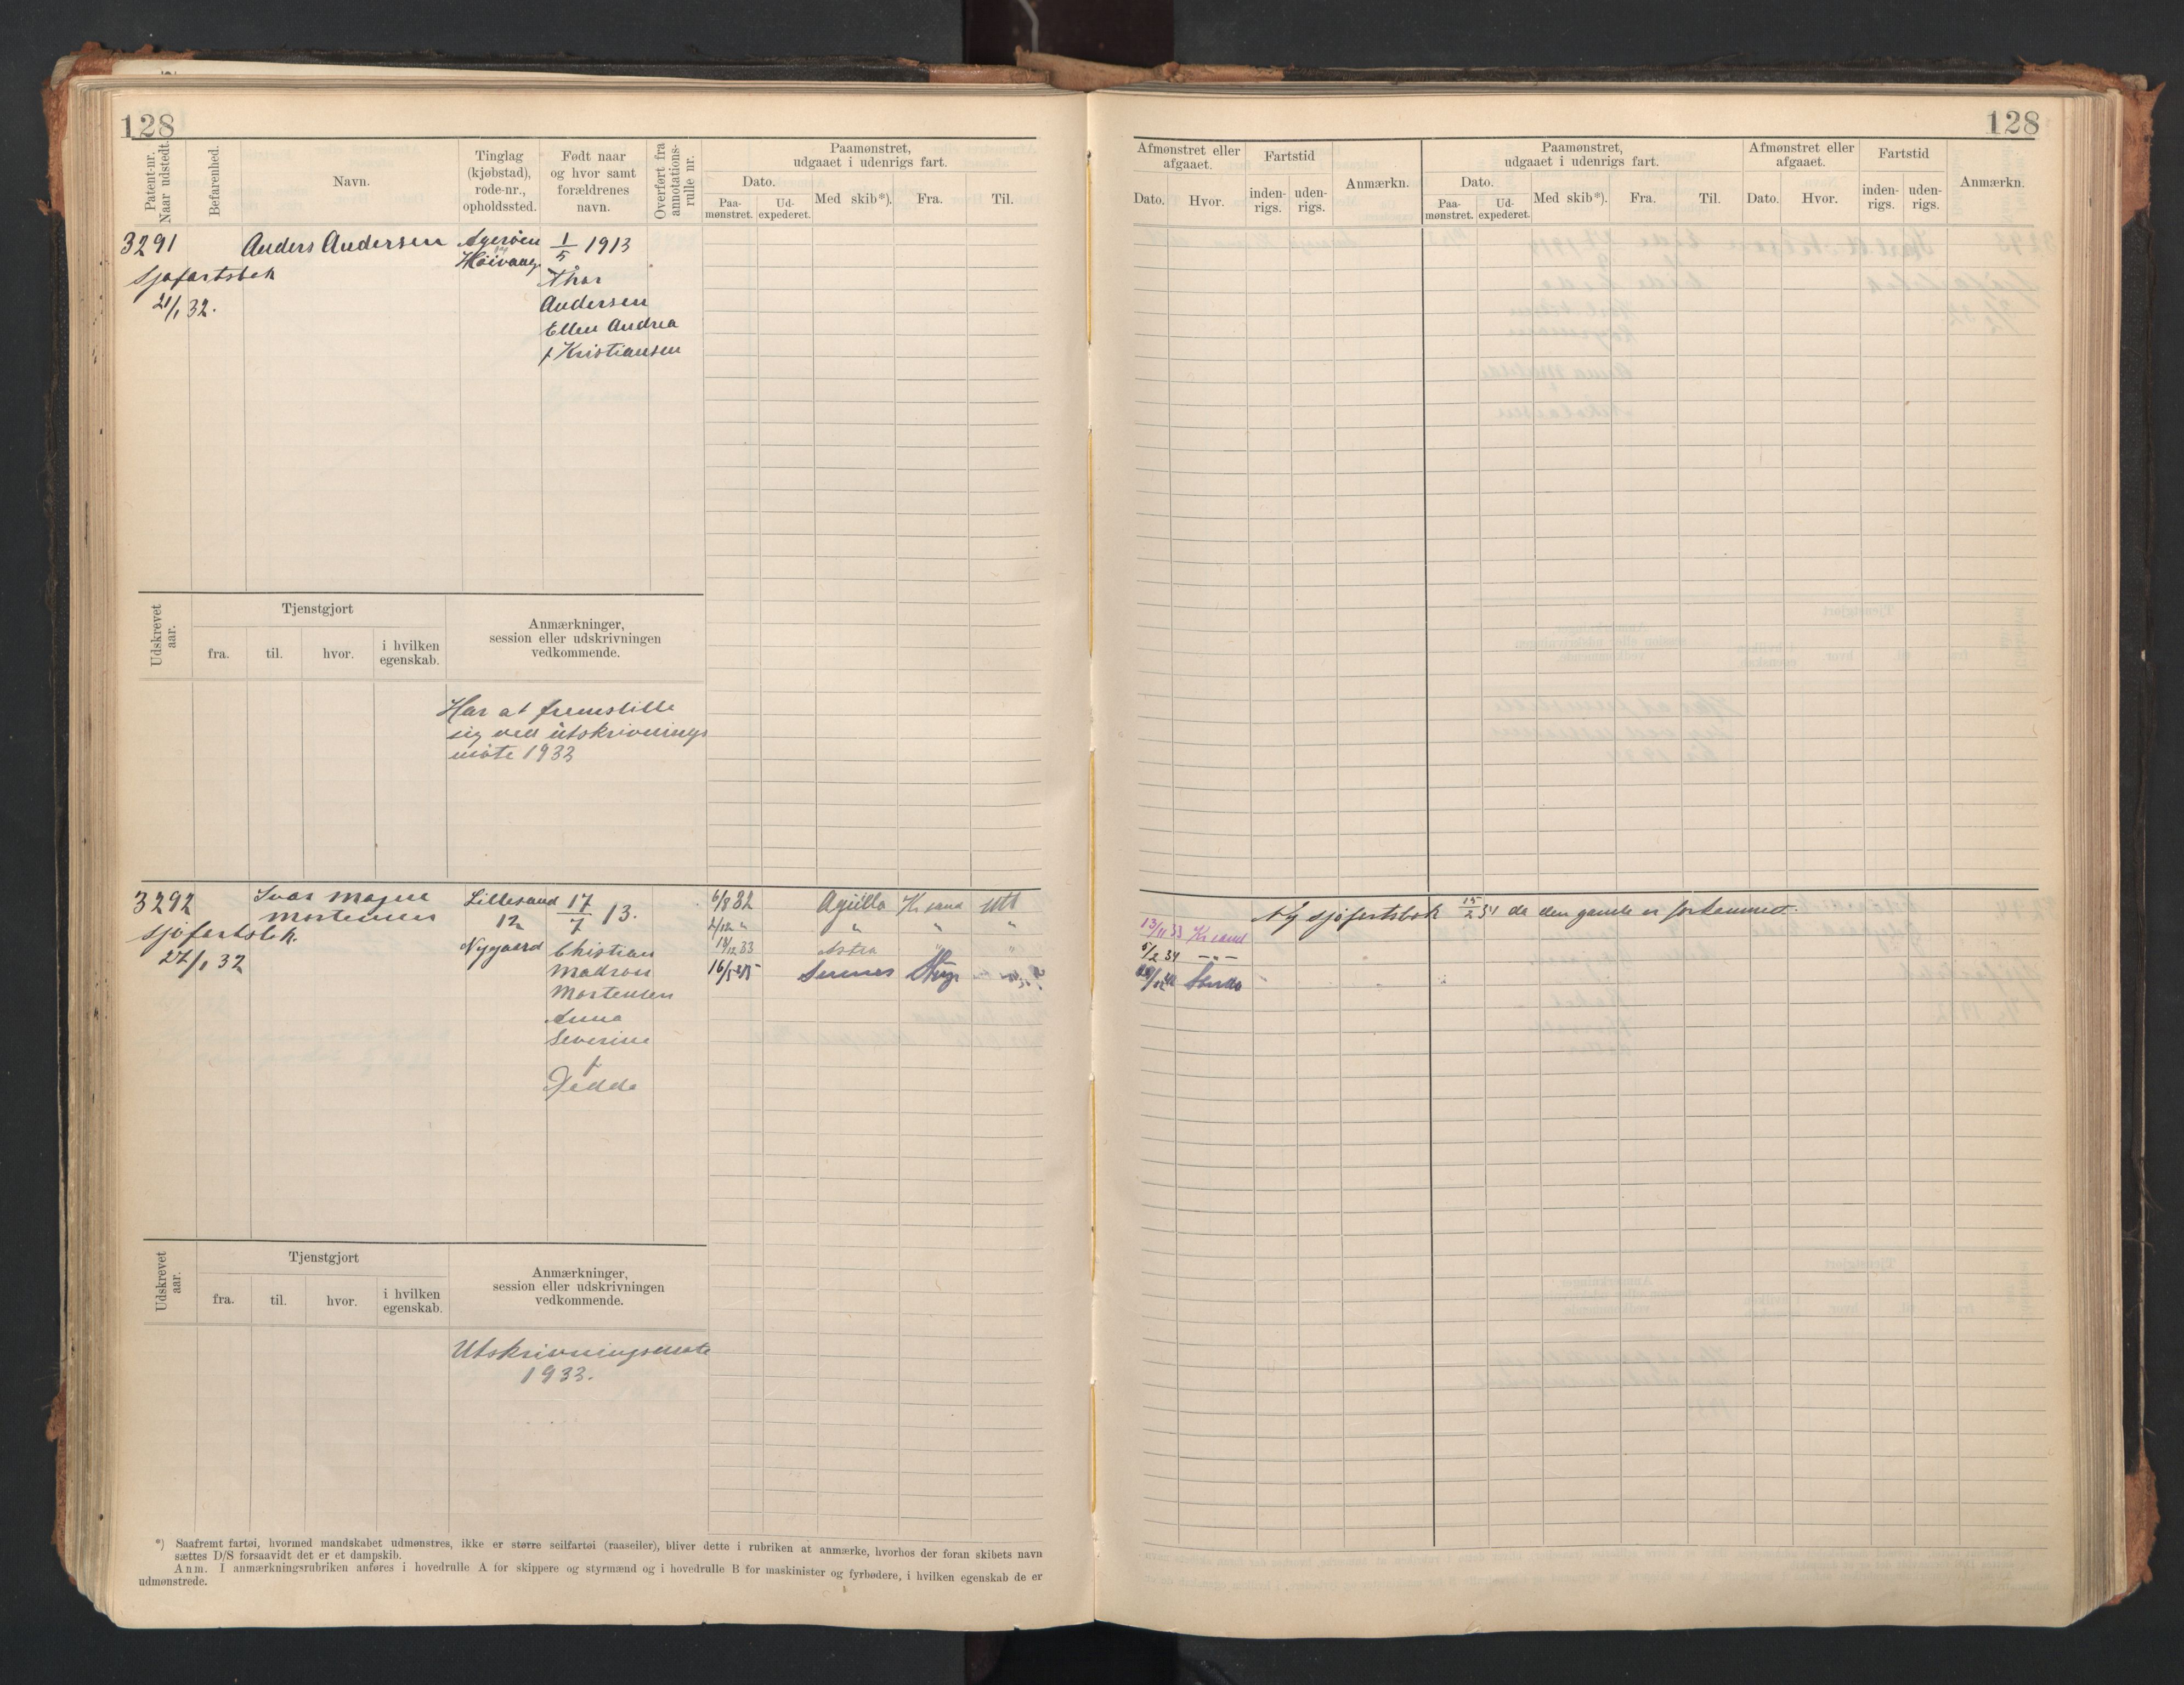 128
Patent-nr. Naar udstedt.
Befarenhed.
Navn.
Tinglag (kjøbstad), rode-nr., opholdssted.
Født naar og hvor samt forældrenes navn.
Overført fra annotations-rulle nr.
Paamønstret, udgaaet i udenrigs fart.
Dato.
Paa-mønstret.
Ud-expederet.
Med skib*).
Fra.
Til.
3291
Sjøfartsbok
21/1 32.
Anders Andersen
Agerøen
Høivaag
1/5 1913
Thor
Andersen
Ellen Andrea
f Kristiansen
Udskrevet aar.
Tjenstgjort
fra.
til.
hvor.
i hvilken egenskab.
Anmærkninger, session eller udskrivningen vedkommende.
Har at fremstille
sig ved utskrivnings
møte 1933
3292
sjøfartsbok.
27/1 32
Ivar Magne
Mortensen
Lillesand
12
Nygaard
17/7 13.
Christian
Madson
Mortensen
Anna
Severine
f
Jedde
6/8 32 Agnilla Kr sand Utl
2/12 " " " "
19/12 33 Astra " "
16/5
Udskrevet aar.
Tjenstgjort
fra.
til.
hvor.
i hvilken egenskab.
Anmærkninger, session eller udskrivningen vedkommende.
Utskrivningsmøte
1933.
*) Saafremt fartøi, hvormed mandskabet udmønstres, ikke er større seilfartøi (raaseiler), bliver dette i rubriken at anmærke, hvorhos der foran skibets navn
sættes D/S forsaavidt det er et dampskib.
Anm. I anmærkningsrubriken anføres i hovedrulle A for skippere og styrmænd og i hovedrulle B for maskinister og fyrbødere, i hvilken egenskab de er
udmønstrede.
128
Afmønstret eller afgaaet.
Dato.
Hvor.
Fartstid
inden-rigs.
uden-rigs.
Anmærkn.
Paamønstret, udgaaet i udenrigs fart.
Dato.
Paa-mønstret.
Ud-expederet.
Med skib*).
Fra.
Til.
Afmønstret eller afgaaet.
Dato.
Hvor.
Fartstid
inden-rigs.
uden-rigs.
Anmærkn.
Ny sjøfartsbok 15/2 34 da den gamle er forkommet.
13/11 33 Kr sand
5/2 34 —"—